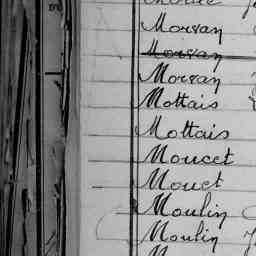 Morvan
Morvan
Morvan
Mottais
Mottais
Moucet
Mouet
Moulin
Moulin